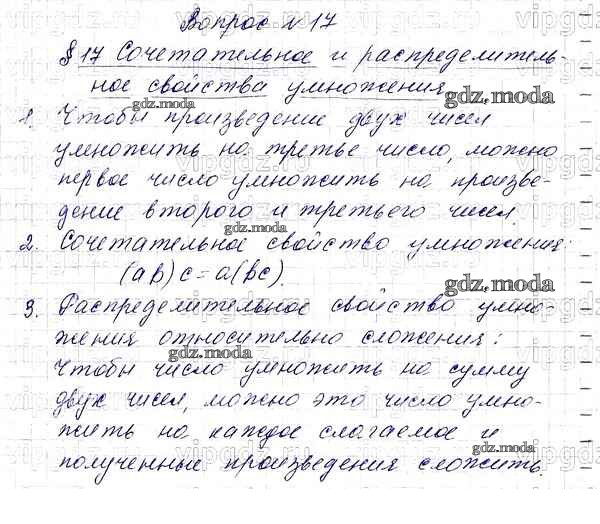 Вопрос №17
§17 Сочетательное и распределитель-
ное свойства умножения
gdz.moda
1. Чтобы произведение двух чисел
gdz.moda
умножить на третье число, можно
первое число умножить на произве-
дение второго и третьего чисел
gdz.moda
2. Сочетательное свойство умножения:
(ab)c=a(bc).
3. Распределительное свойство умно-
жения относительно сложения:
gdz.moda
Чтобы число умножить на сумму
двух чисел, можно это число умно-
жить на каждое слагаемое и
gdz.moda
полученные произведения сложить.